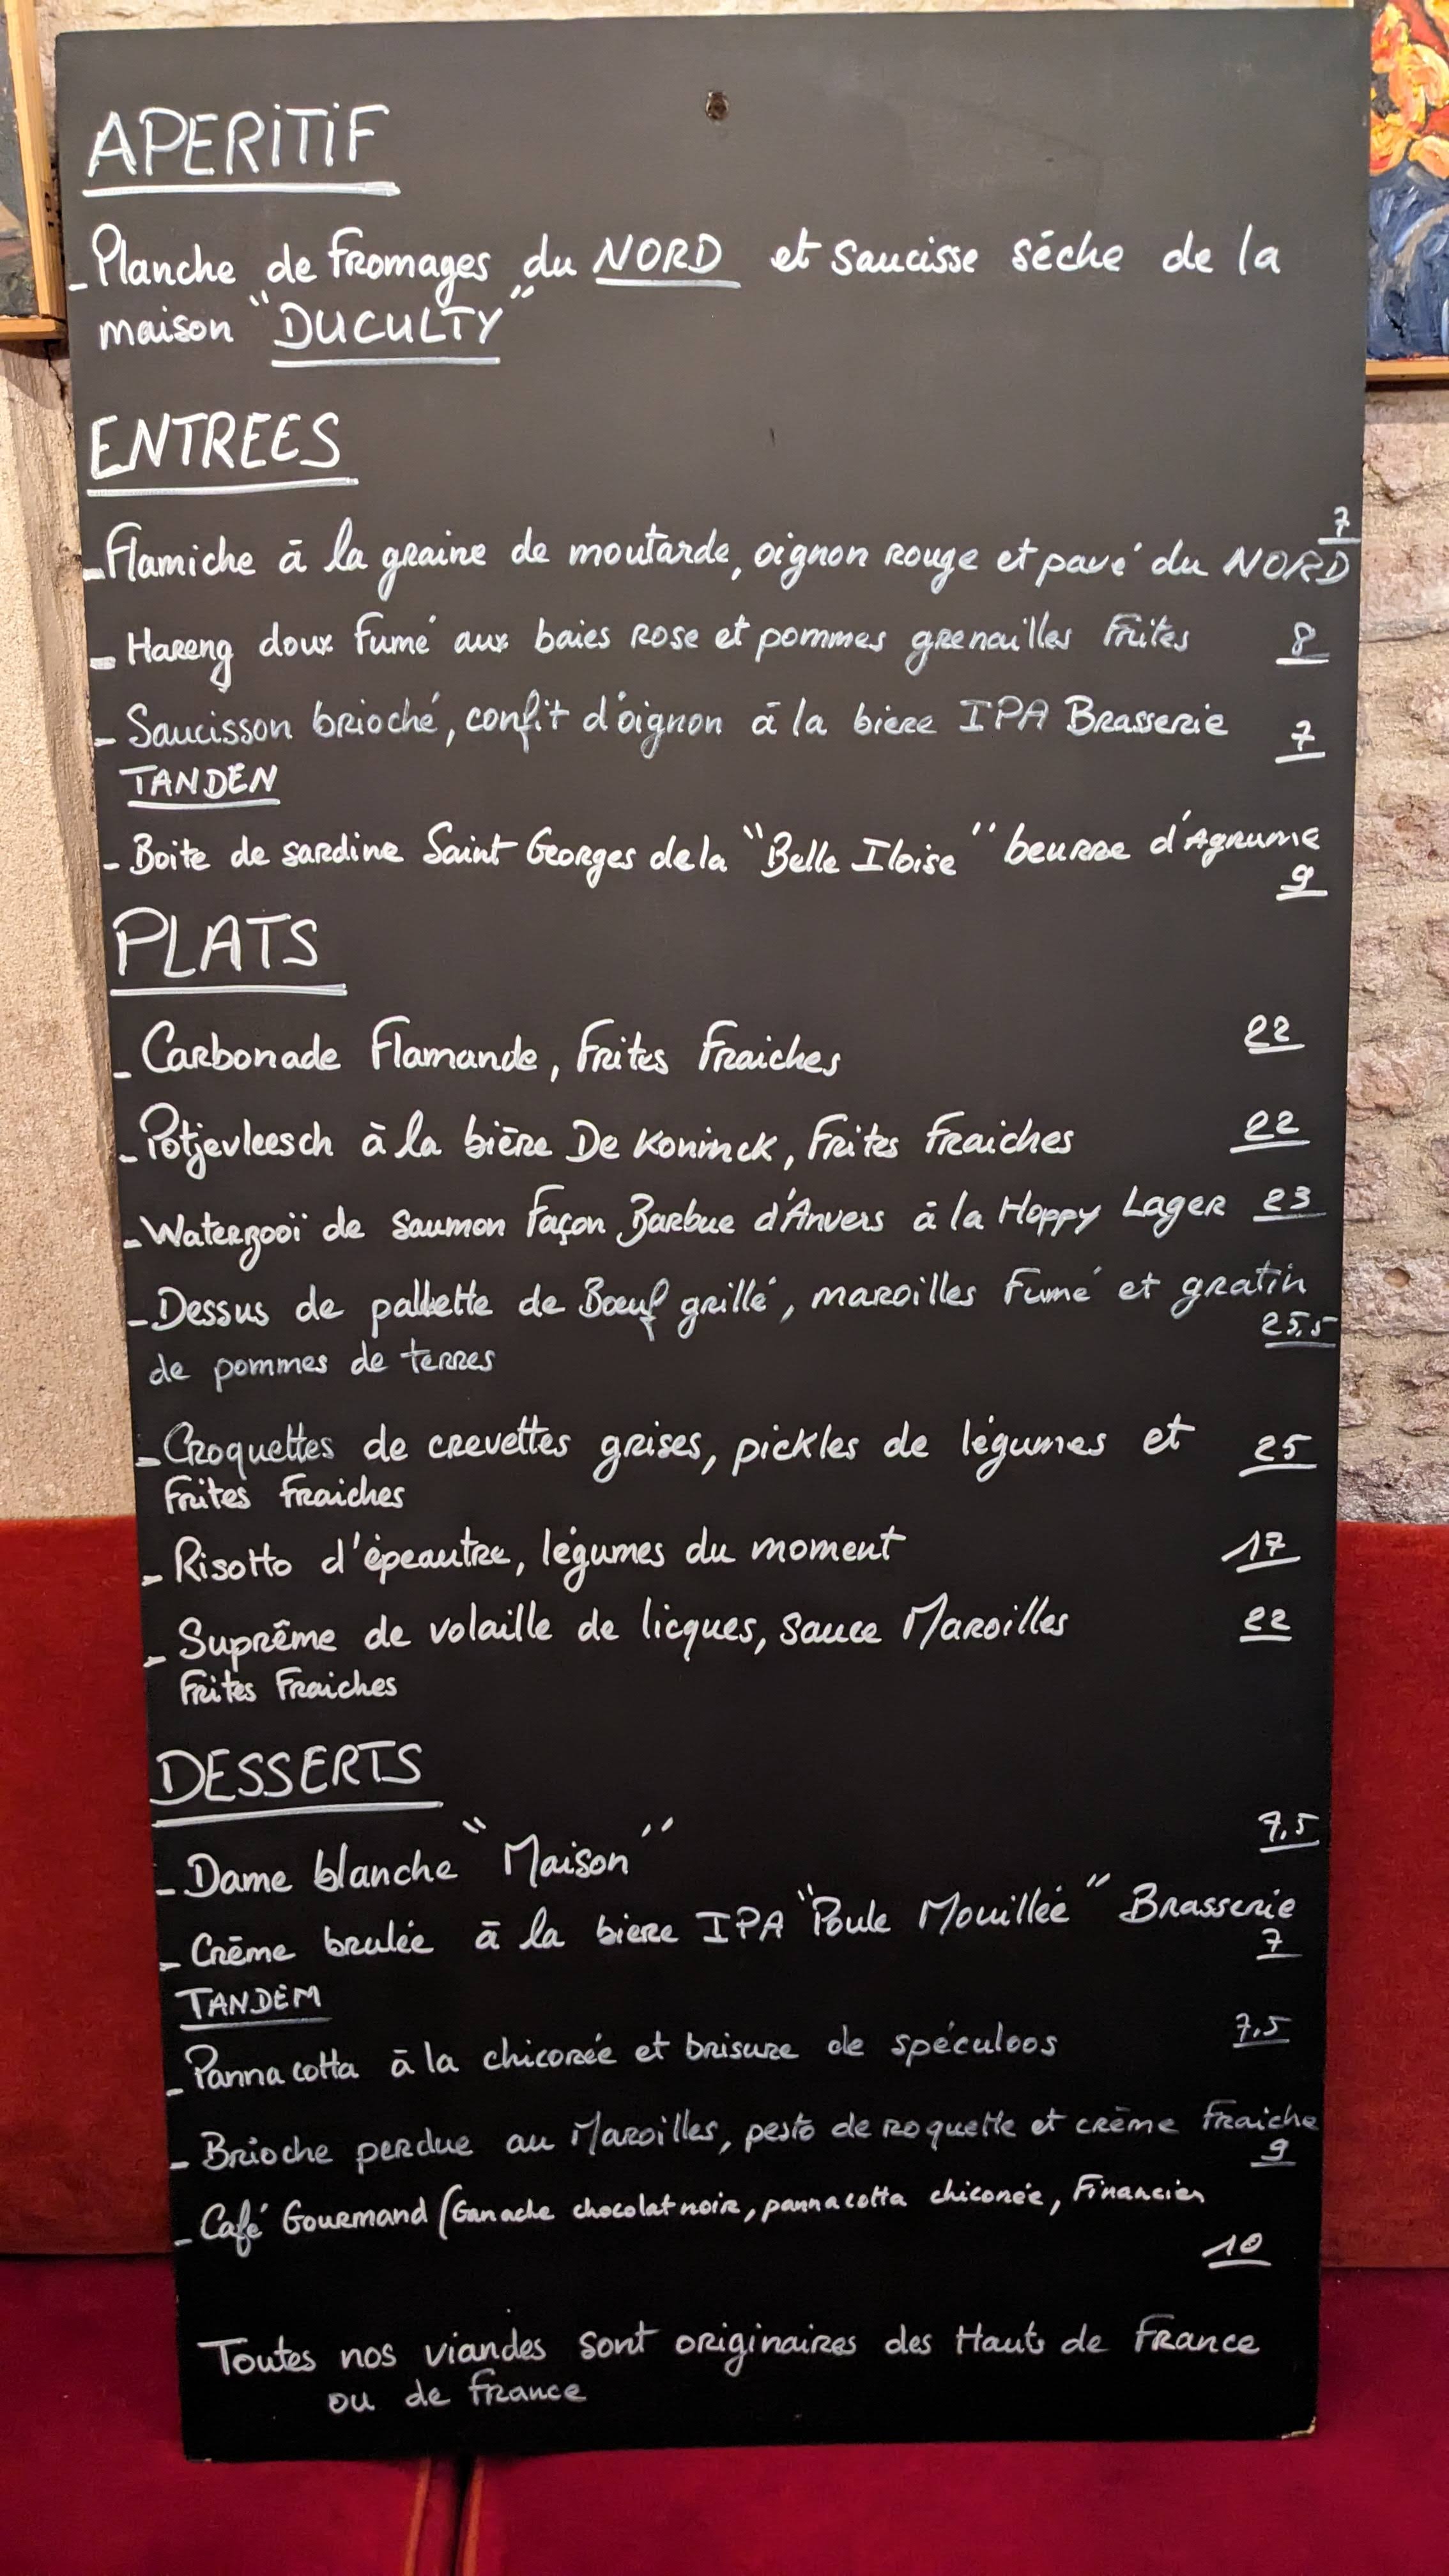 APERITIF
- Planche de fromages du NORD et saucisse séche de la
maison "DUCULTY"
ENTREES
7
- Flamiche à la graine de moutarde, oignon rouge et pavé du NORD
- Hareng doux fumé aux baies rose et pommes grenailles frites 8
- Saucisson brioché, confit d'oignon à la biere IPA Brasserie 7
TANDEN
- Boite de sardine Saint Georges de la "Belle Iloise" beurre d'Agrume
9
PLATS
- Carbonade Flamande, frites fraiches 22
- Potjevleesch à la bière De Koninck, frites fraiches 22
- Waterzooï de saumon façon Barbue d'Anvers à la Hoppy Lager 23
- Dessus de pallette de Bœuf grillé, maroilles fumé et gratin
25,5
de pommes de terres
- Croquettes de crevettes grises, pickles de légumes et 25
frites fraiches
- Risotto d'épeautre, légumes du moment 17
- Suprême de volaille de licques, sauce Maroilles 22
frites fraiches
DESSERTS
- Dame blanche "Maison" 7,5
- Crême brulée à la biere IPA "Poule Mouillée" Brasserie
7
TANDEM
- Panna cotta à la chicorée et brisure de spéculoos 7,5
- Brioche perdue au Maroilles, pesto de roquette et crème fraiche
9
- Café Gourmand (Ganache chocolat noir, panna cotta chicorée, Financier
10
Toutes nos viandes sont originaires des Hauts de France
ou de france